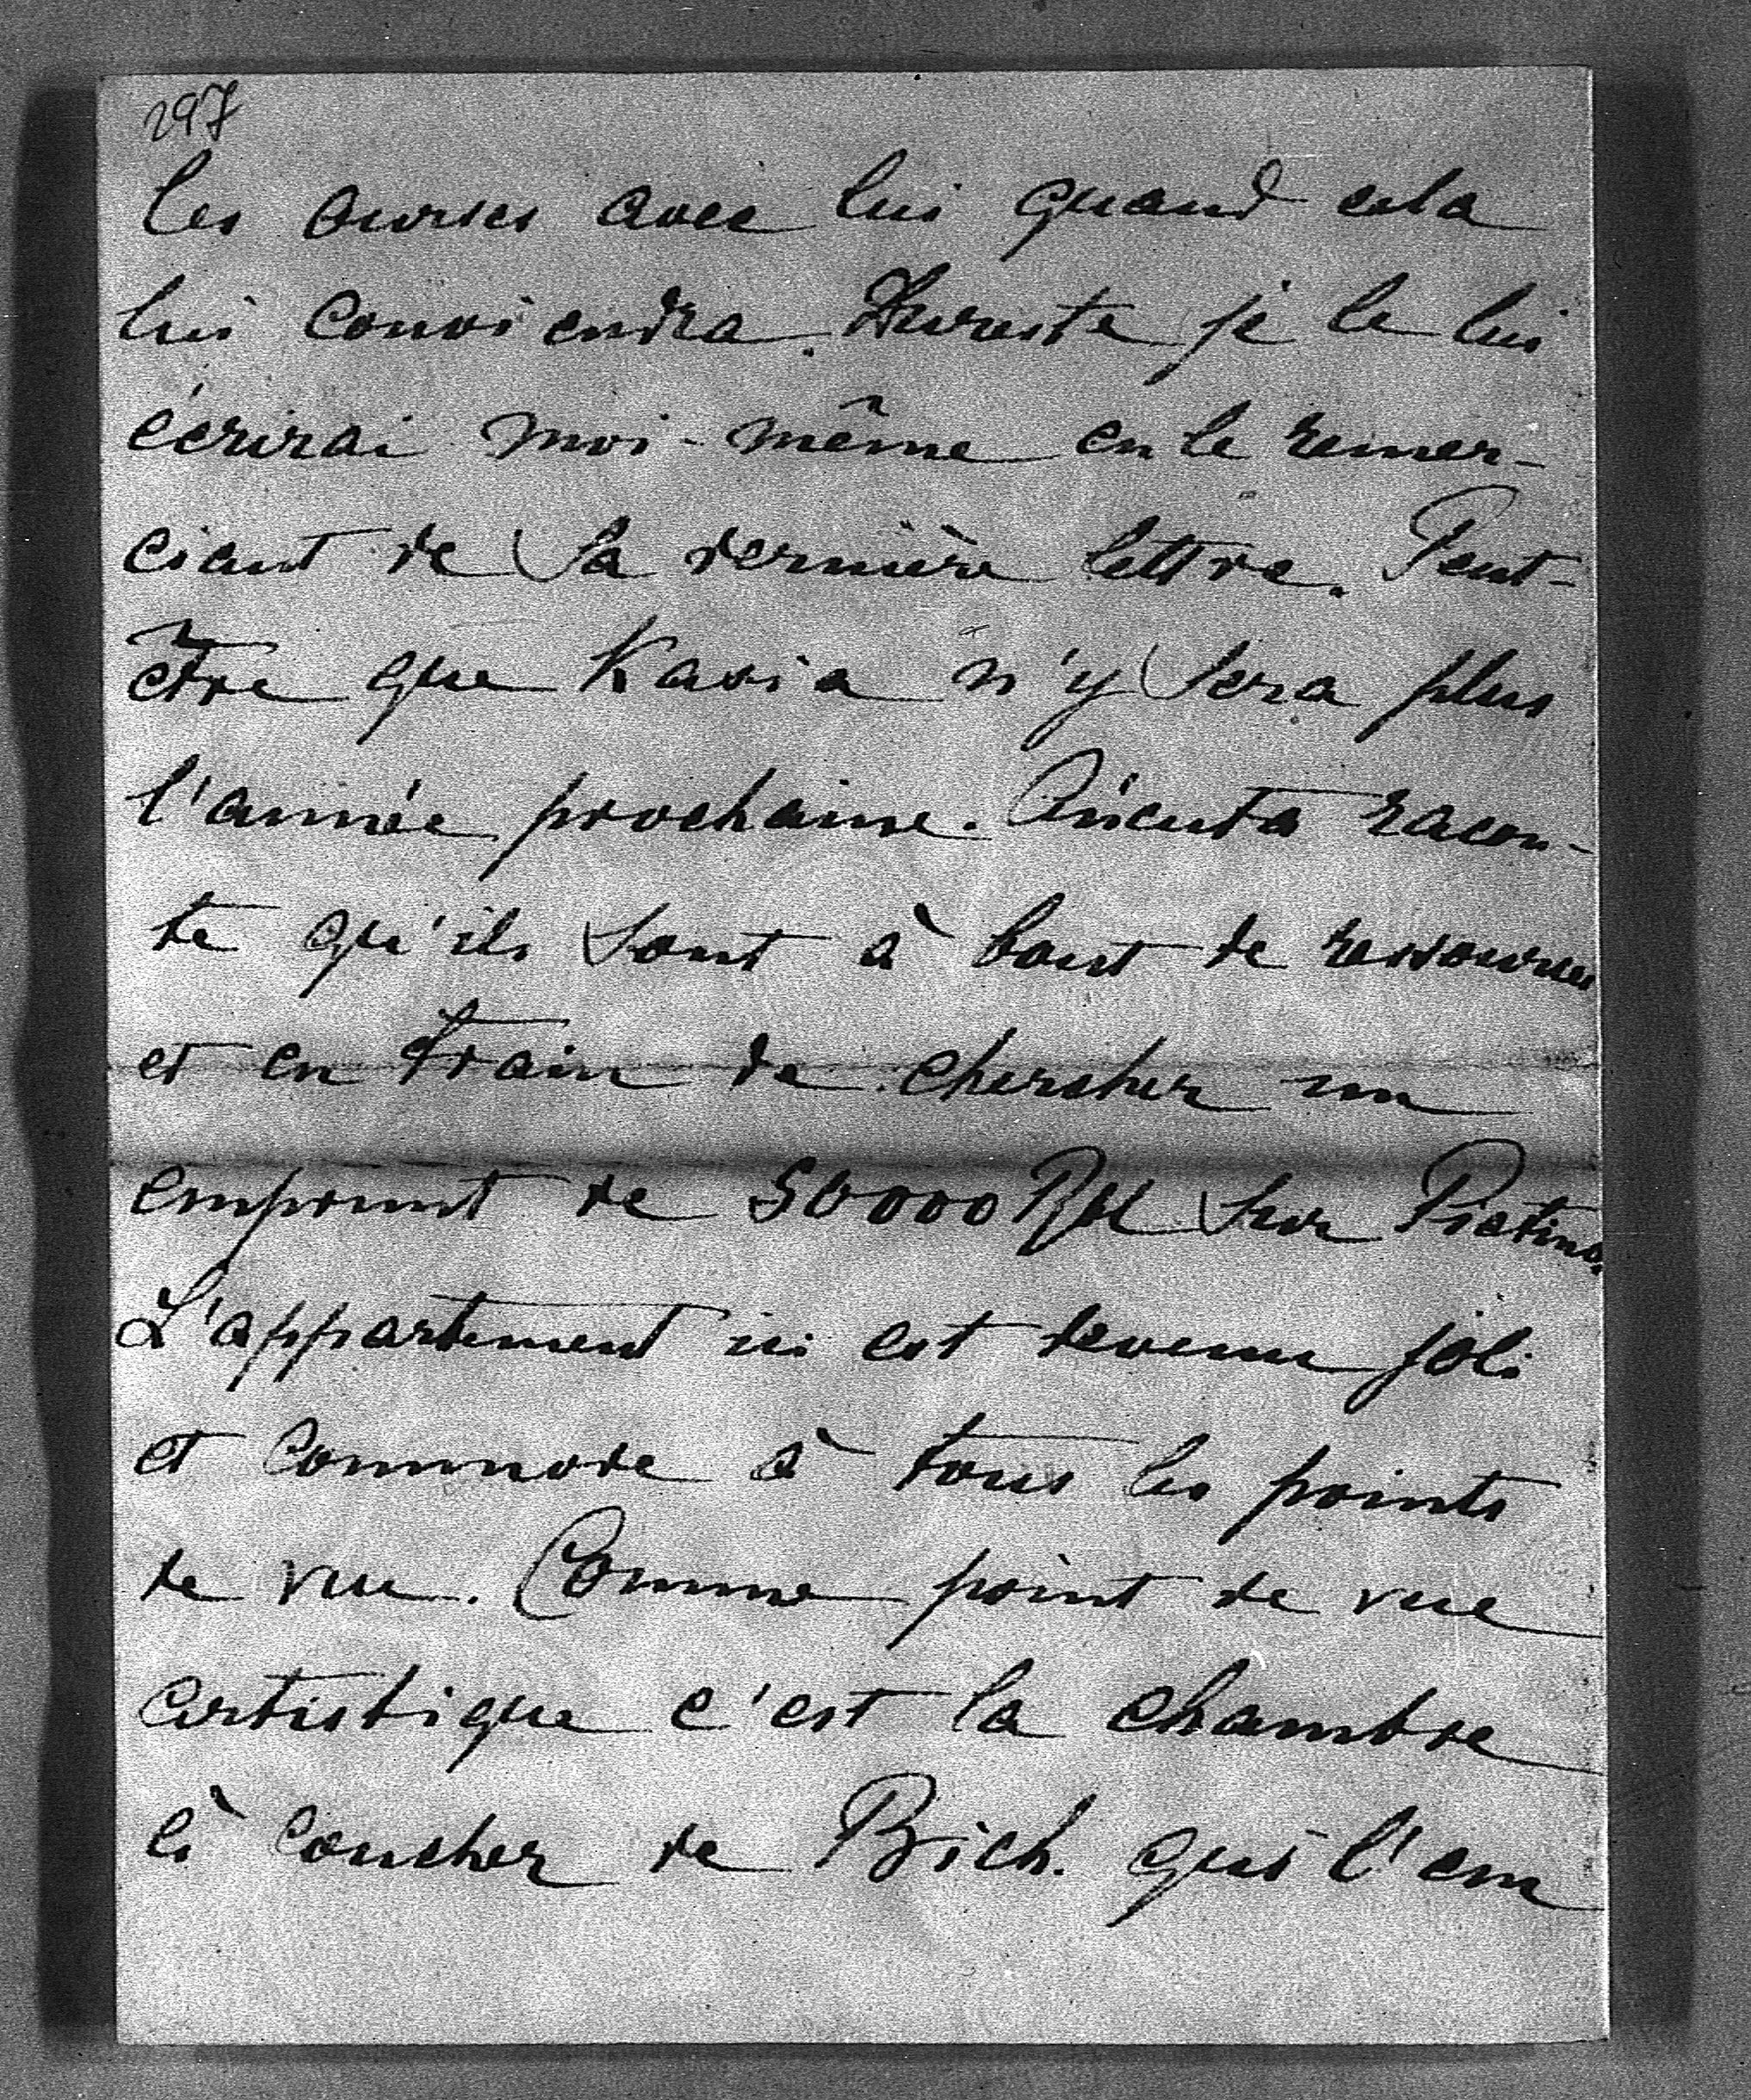 297
les ourses avec lui quand cela
lui conviendra. Dureste je le lui
écrirai moi-même en le remer-
ciant de sa dernière lettre. Peut-
être que Kavia n'y sera plus
l'année prochaine. racon-
te qu'ils sont à bout de ressources
et en train de chercher un
emprunt de 50000 sur
L'appartement ici est devenu joli
et commode à tous les points
de vue. Comme point de vue
artistique c'est la chambre
à coucher de Bich. qui l'em